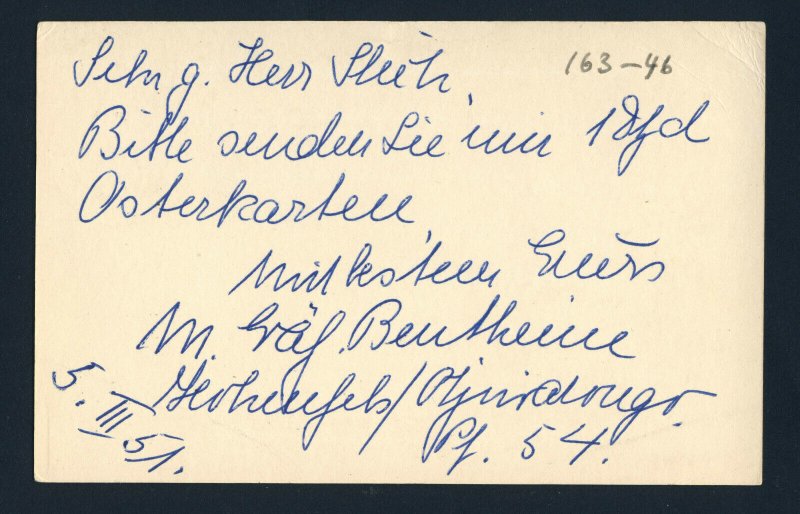 Sehr g. Herr
163-46
Bitte senden Sie mir 1 Dzd
Osterkarten,
Mit bestem Gruß
M. Gräf. Bentheim
Hohenfels/
Pf. 54.
5. III 51.